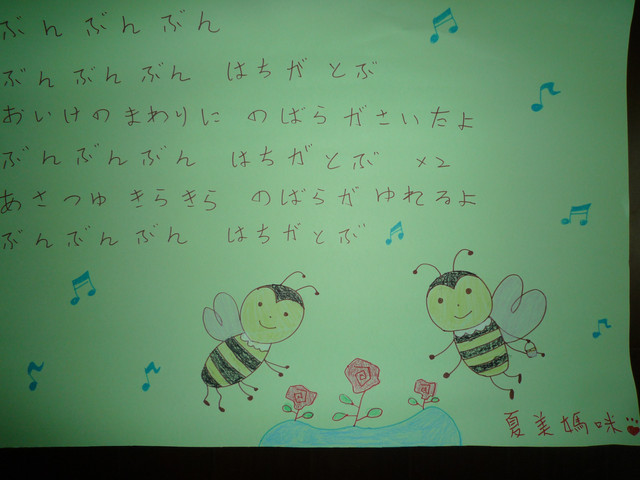 ぶんぶんぶん
ぶんぶんぶん はちがとぶ
おいけのまわりに のばらがさいたよ
ぶんぶんぶん はちがとぶ ×2
あさつゆ きらきら のばらがゆれるよ
ぶんぶんぶん はちがとぶ
夏美媽咪